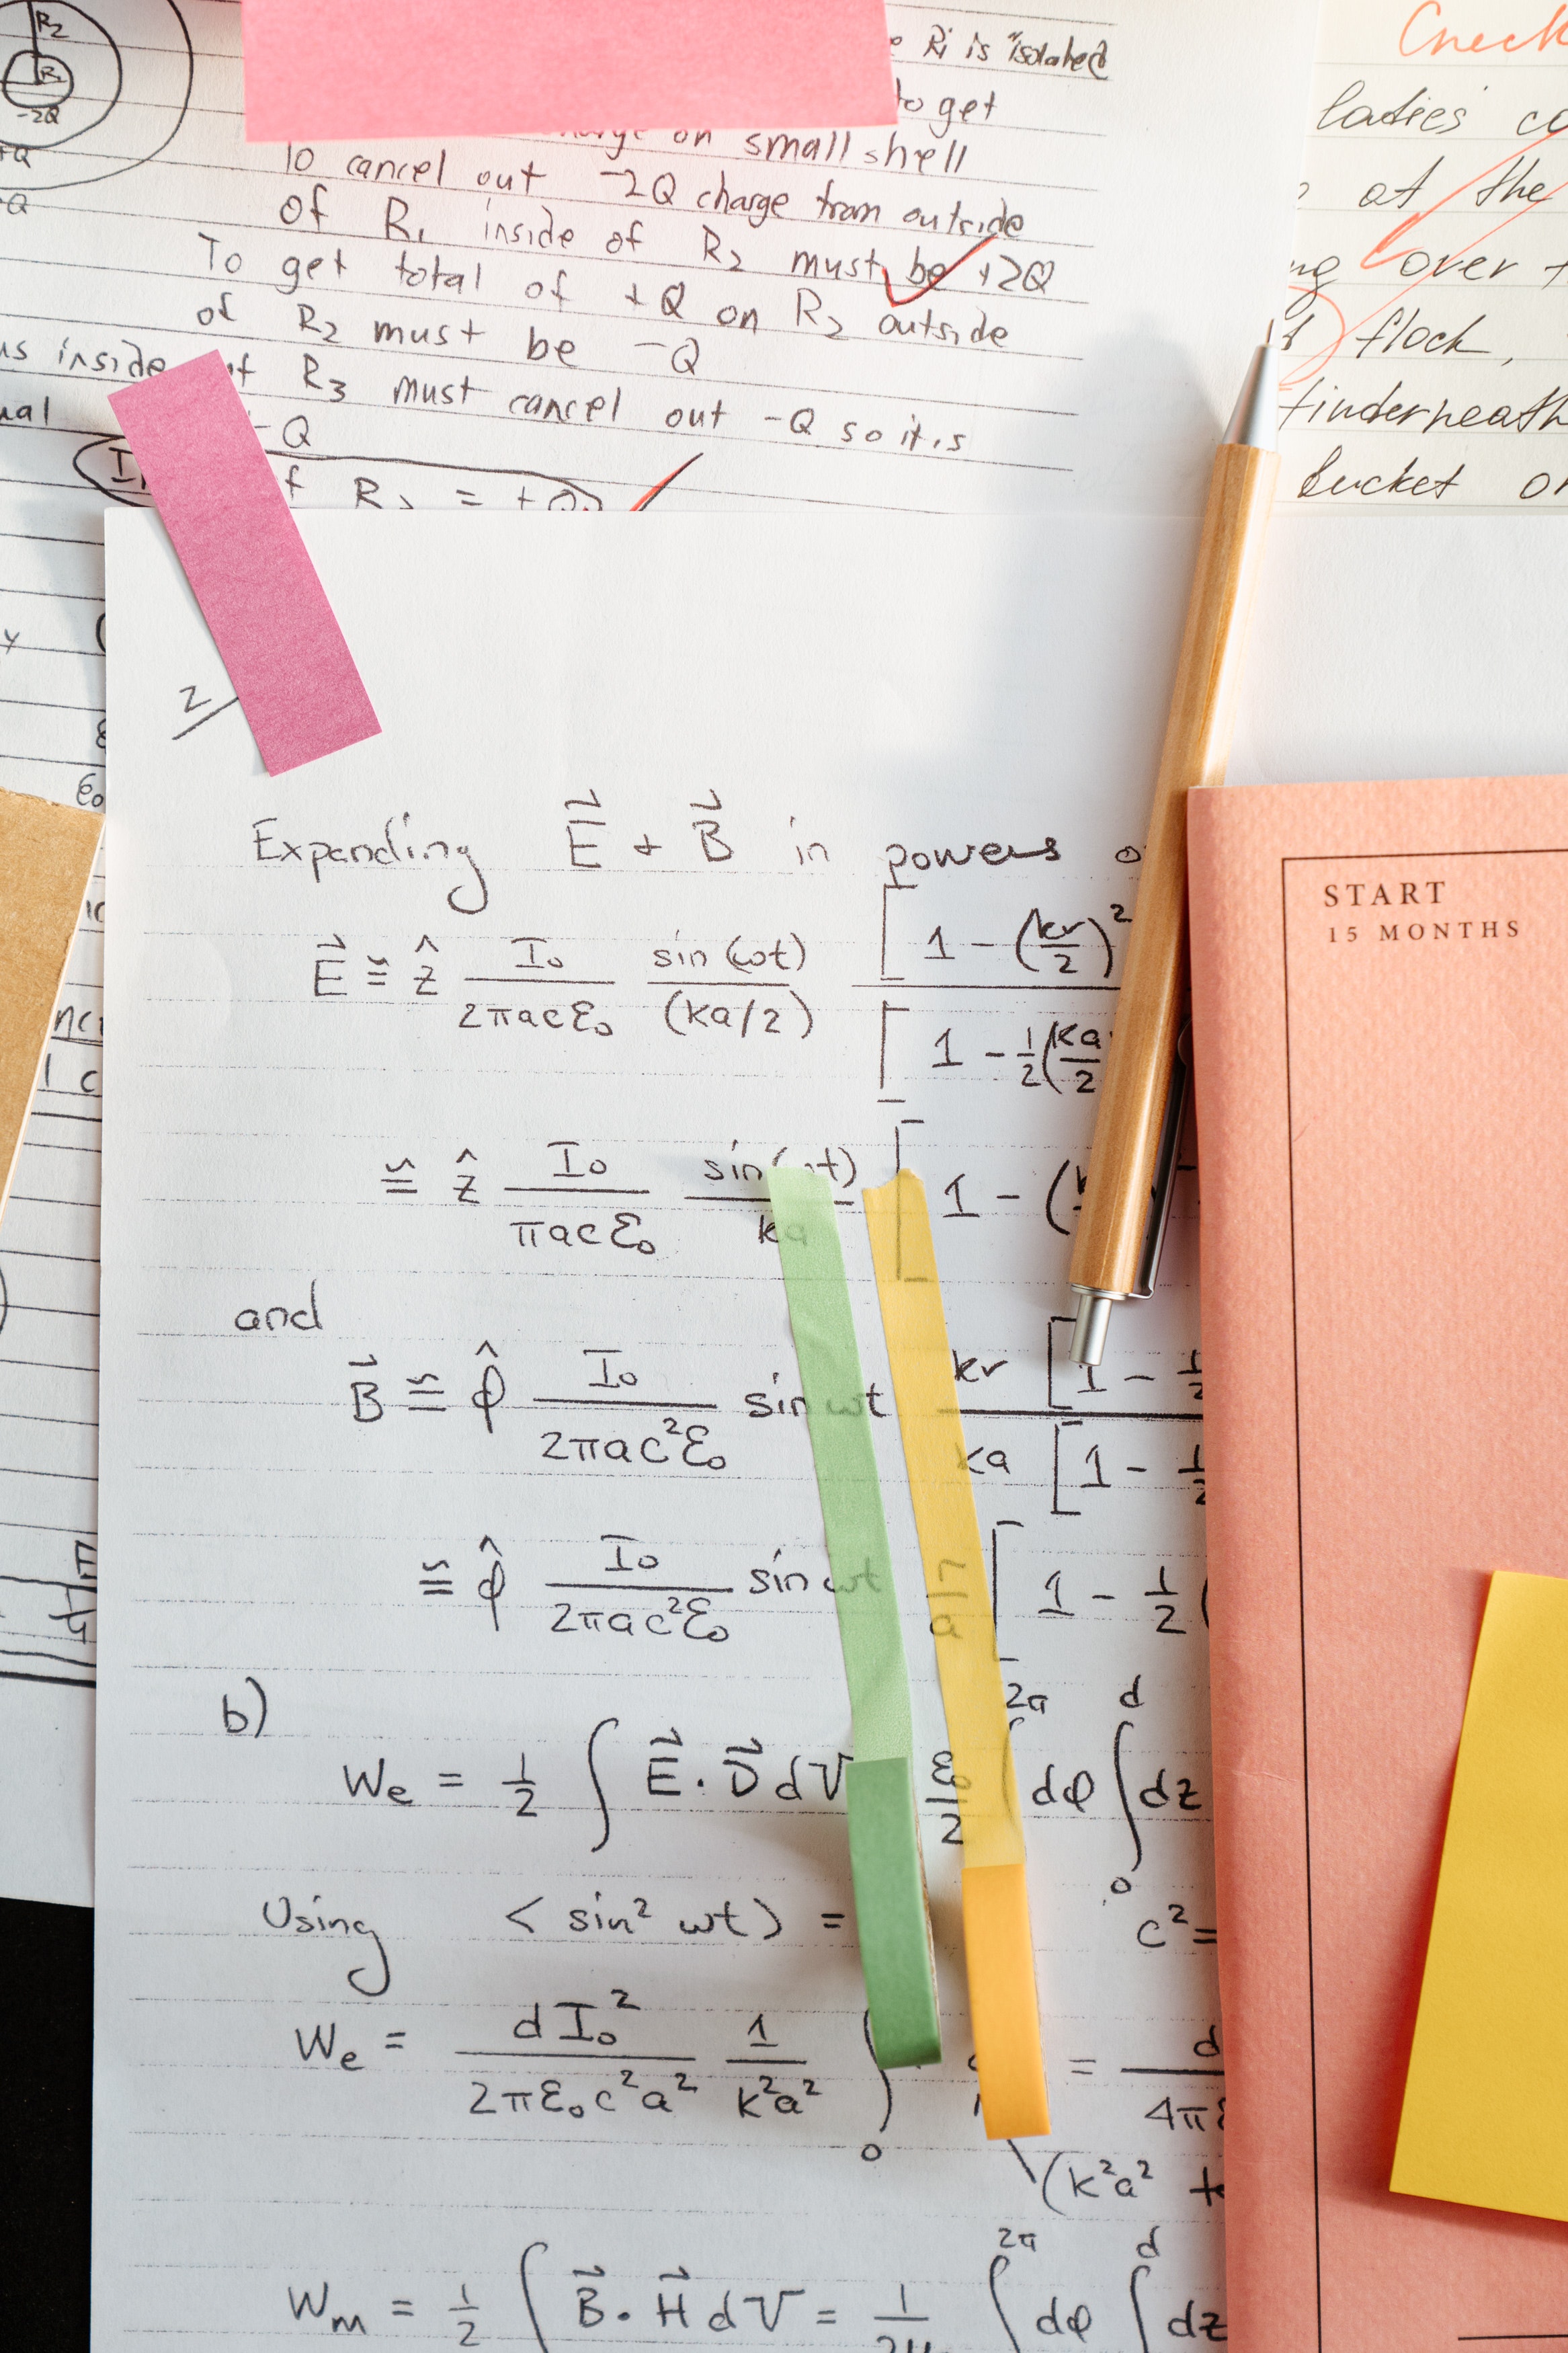 R₂
R₁
-2Q
+Q
-Q
Ri is isolated
to get
charge on small shell
To cancel out -2Q charge from outside
of R₁ inside of R₂ must be +2Q
To get total of +Q on R₂ outside
of R₂ must be -Q
inside of R₃ must cancel out -Q so it is
-Q
R₂ = +Q
Check
ladies
at the
over
flock,
underneath
bucket on
2
ε₀
Expanding E⃗ + B⃗ in powers
E⃗ ≅ ẑ I₀/(2πacε₀) sin(ωt)/(ka/2) [1 - (kr/2)²
[1 - 1/2(ka/2
≅ ẑ I₀/(πacε₀) sin(ωt)/ka [1 - (
and
B⃗ ≅ φ̂ I₀/(2πac²ε₀) sin ωt kr [1 - 1/2
ka [1 - 1/2
≅ φ̂ I₀/(2πac²ε₀) sin ωt r/a [1 - 1/2 (
b)
We = 1/2 ∫ E⃗ · D⃗ dV ε₀/2 ∫ 2π dφ ∫₀ᵈ dz
Using < sin² ωt > = c² =
We = dI₀²/(2πε₀c²a²) 1/(k²a²) ∫₀ = d/4πε
(k²a²
Wm = 1/2 ∫ B⃗ · H⃗ dV = 1/2μ ∫ 2π dφ ∫ d dz
START
15 MONTHS